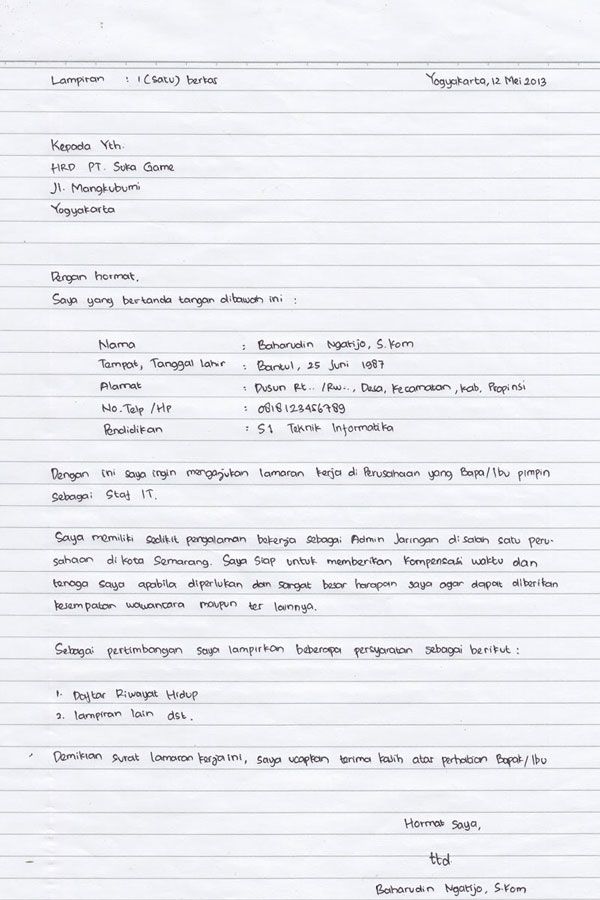 Lampiran : 1 (Satu) berkas Yogyakarta, 12 Mei 2013
Kepada Yth.
HRD PT. Suka Game
Jl. Mangkubumi
Yogyakarta
Dengan hormat,
Saya yang bertanda tangan dibawah ini :
Nama : Baharudin Ngatijo, S.Kom
Tempat, Tanggal lahir : Bantul, 25 Juni 1987
Alamat : Dusun Rt.. /Rw.., Desa, Kecamatan, Kab, Propinsi
No. Telp /Hp : 0818123456789
Pendidikan : S1 Teknik Informatika
Dengan ini saya ingin mengajukan lamaran kerja di Perusahaan yang Bapa/Ibu pimpin
sebagai Staf IT.
Saya memiliki sedikit pengalaman bekerja sebagai Admin Jaringan di salah satu peru-
sahaan di kota Semarang. Saya siap untuk memberikan kompensasi waktu dan
tenaga saya apabila diperlukan dan sangat besar harapan saya agar dapat diberikan
kesempatan wawancara maupun tes lainnya.
Sebagai pertimbangan saya lampirkan beberapa persyaratan sebagai berikut :
1. Daftar Riwayat Hidup
2. lampiran lain dst.
Demikian surat lamaran kerja ini, saya ucapkan terima kasih atas perhatian Bapak/Ibu
Hormat Saya,
ttd
Baharudin Ngatijo, S.Kom